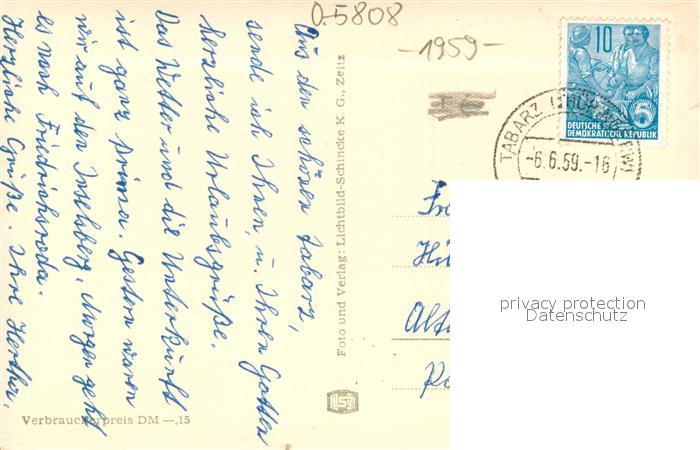 D-5808
-1959-
Aus den schönen Tabarz,
sende ich Ihnen, u. Ihren Gatten
herzliche Urlaubsgrüße.
Das Wetter und die Unterkunft
ist ganz prima. Gestern waren
wir auf den Inselsberg, Morgen geht
es nach Friedrichroda.
Herzliche Grüße. Ihre Hertha.
Verbraucherpreis DM —,15
Foto und Verlag: Lichtbild-Schincke K. G., Zeitz
10
5
DEUTSCHE
DEMOKRATISCHE REPUBLIK
TABARZ (THÜR
-6.6.59.-16
Fr
Hü
Alt
privacy protection
Datenschutz